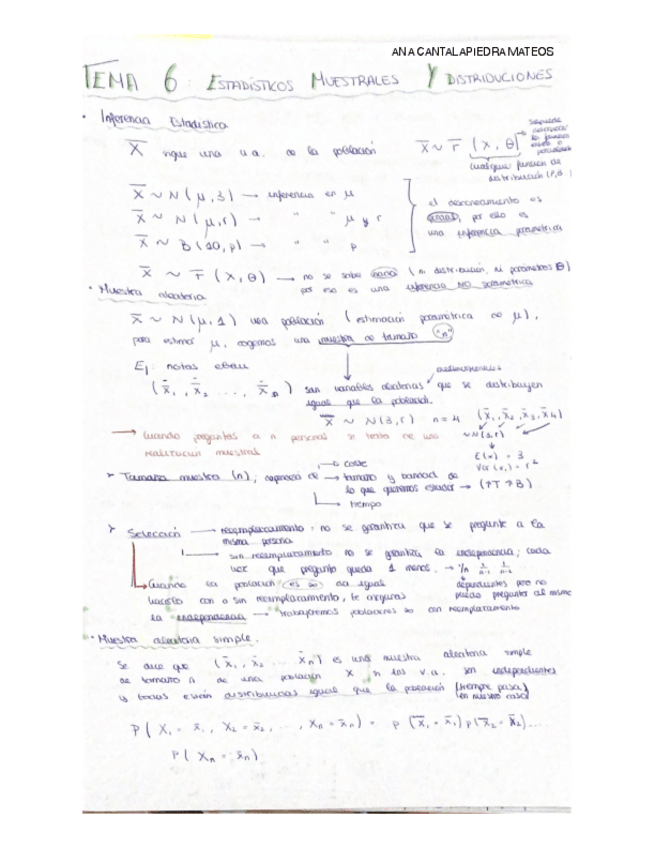 ANA CANTALAPIEDRA MATEOS
TEMA 6: ESTADÍSTICOS MUESTRALES Y DISTRIBUCIONES
• Inferencia Estadística
X sigue una v.a. de la población X ~ F (x, θ)
cualquier función de
distribución (P, B
X ~ N(μ, 3) → inferencia en μ
X ~ N(μ, r) → " " μ y r
X ~ B(10, p) → " " p
el desconocimiento es
, por eso es
una inferencia parametrica
X ~ F (x, θ) → no se sabe nada (ni distribución, ni parámetros θ)
por eso es una inferencia NO parametrica
• Muestra aleatoria
X ~ N(μ, 1) una población (estimación parametrica de μ),
para estimar μ, cogemos una muestra de tamaño "n"
Ej: notas ebau
(x1, x2 ..., xn) son variables aleatorias que se distribuyen
igual que la población.
X ~ N(3, r) n = 4 (x1, x2, x3, x4)
→ Cuando preguntas a n personas se trata de una
realización muestral
E(x) = 3
Var(x) = r²
➢ Tamaño muestra (n), depende de → coste
→ tamaño y bondad de
lo que queremos estudiar → (↑T ↑B)
→ tiempo
➢ Selección → reemplazamiento: no se garantiza que se pregunte a la
misma persona
→ sin reemplazamiento no se garantiza la independencia; cada
vez que pregunto queda 1 menos. → 1/n
dependientes pero no
puedo preguntar al mismo
→ Cuando la población es ∞ da igual
hacerlo con o sin reemplazamiento, te aseguras
la independencia → trabajaremos poblaciones ∞ con reemplazamiento
• Muestra aleatoria simple.
Se dice que (x1, x2 ... xn) es una muestra aleatoria simple
de tamaño n de una población X si las v.a. son independientes
y todas están distribuidas igual que la población (siempre pasa
en nuestro caso)
P(X1 = x1, X2 = x2, ..., Xn = xn) = P(X1 = x1) P(X2 = x2)...
P(Xn = xn)